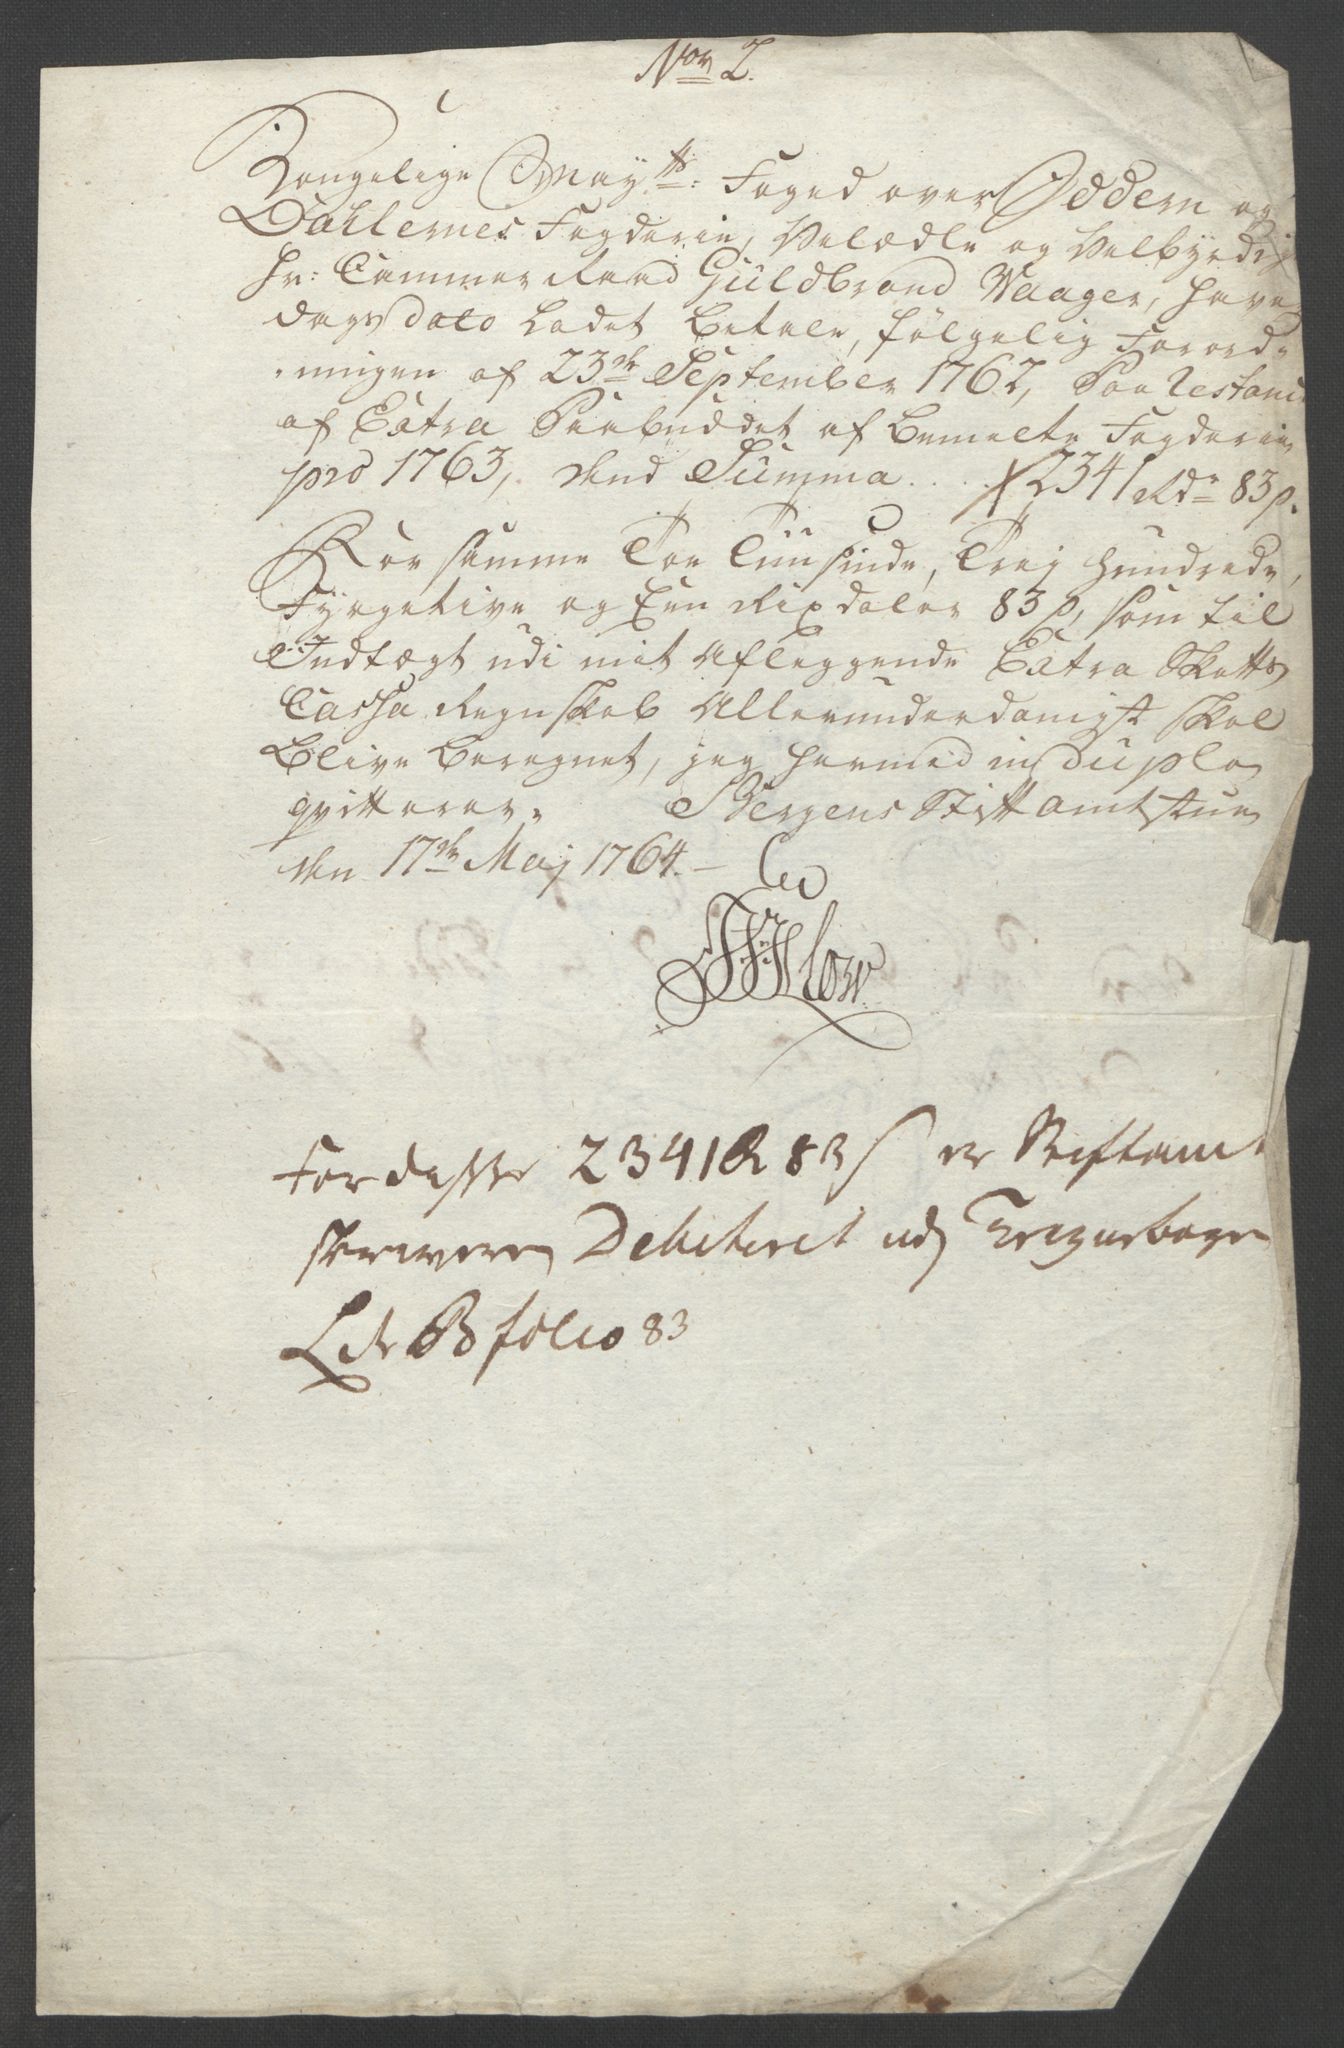 No 2.
Kongelige Mayts: Foged over Jedderen og
Dahlernes Fogderie, Velædle og Velbyrdig
Hr: Cammer Raad Guldbrand Waager, haver
dags dato ladet betale, følgelig Forord-
ningen af 23de September 1762, Paa Restance
af Extra Paabuddet af bemelte Fogderie
pro 1763, dend Summa .... 2341 Rdr 83 s.
For samme Toe Tusinde, Trej Hundrede,
Fyrgetive og Een Rixdaler 83 s, som til
Indtægt udi mit aflæggende Extra Skatts
Cassa Regnskab Allerunderdanigst skal
blive beregnet, jeg hermed in duplo
qvitterer. Bergens Stiftamtstue
den 17de Maj 1764. –
For disse 2341 R 83 s er Stiftamt
skriveren Debiteret udj
Lr B folio 83